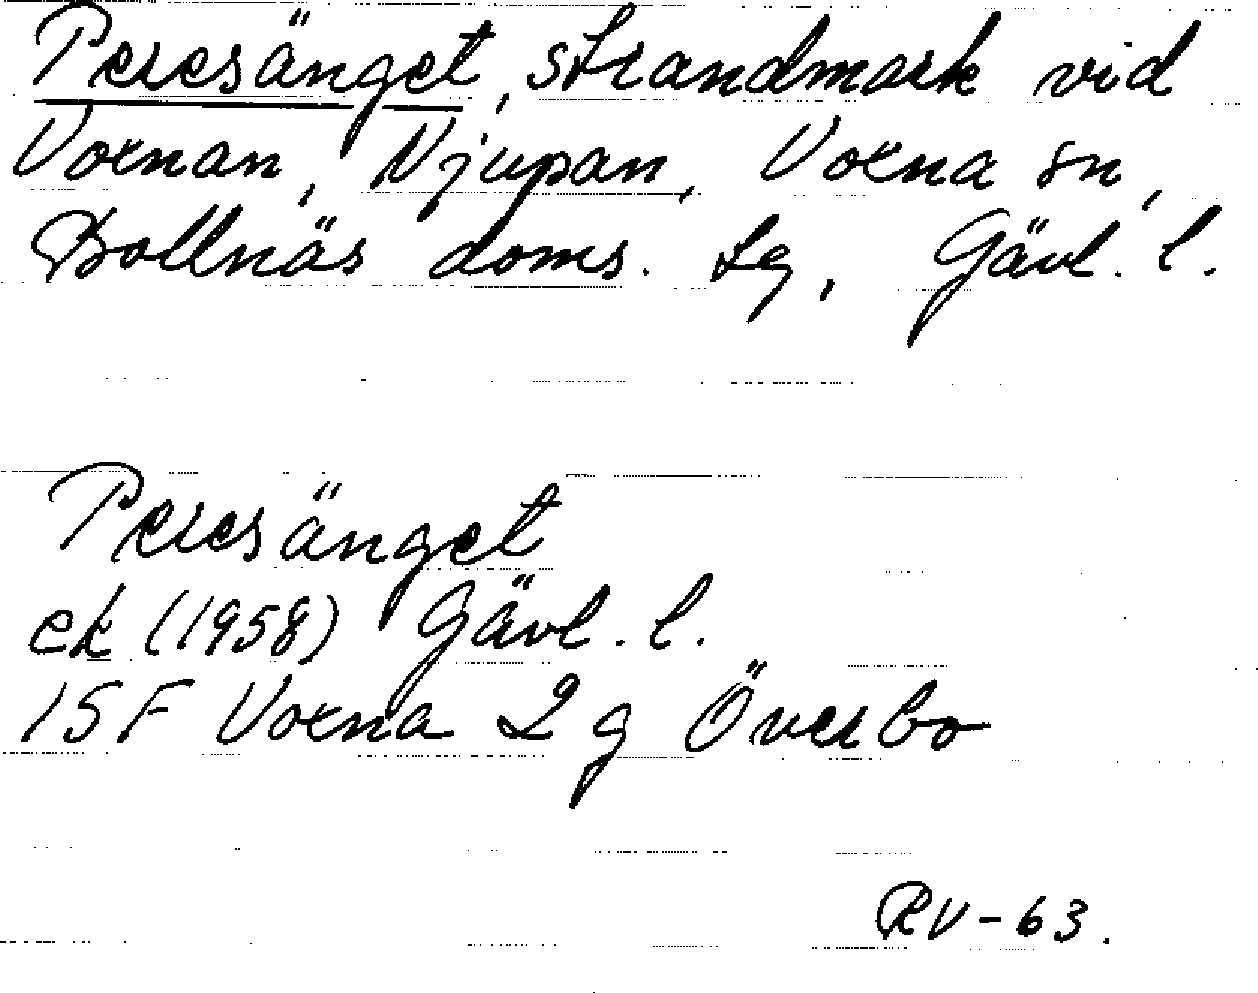 Persesänget, strandmark vid
Voxnan, Njupan, Voxna sn,
Bollnäs doms. Lg, Gävl. l.
Persesänget
ek (1958) Gävl. l.
15F Voxna 2 g Överbo
RV-63.